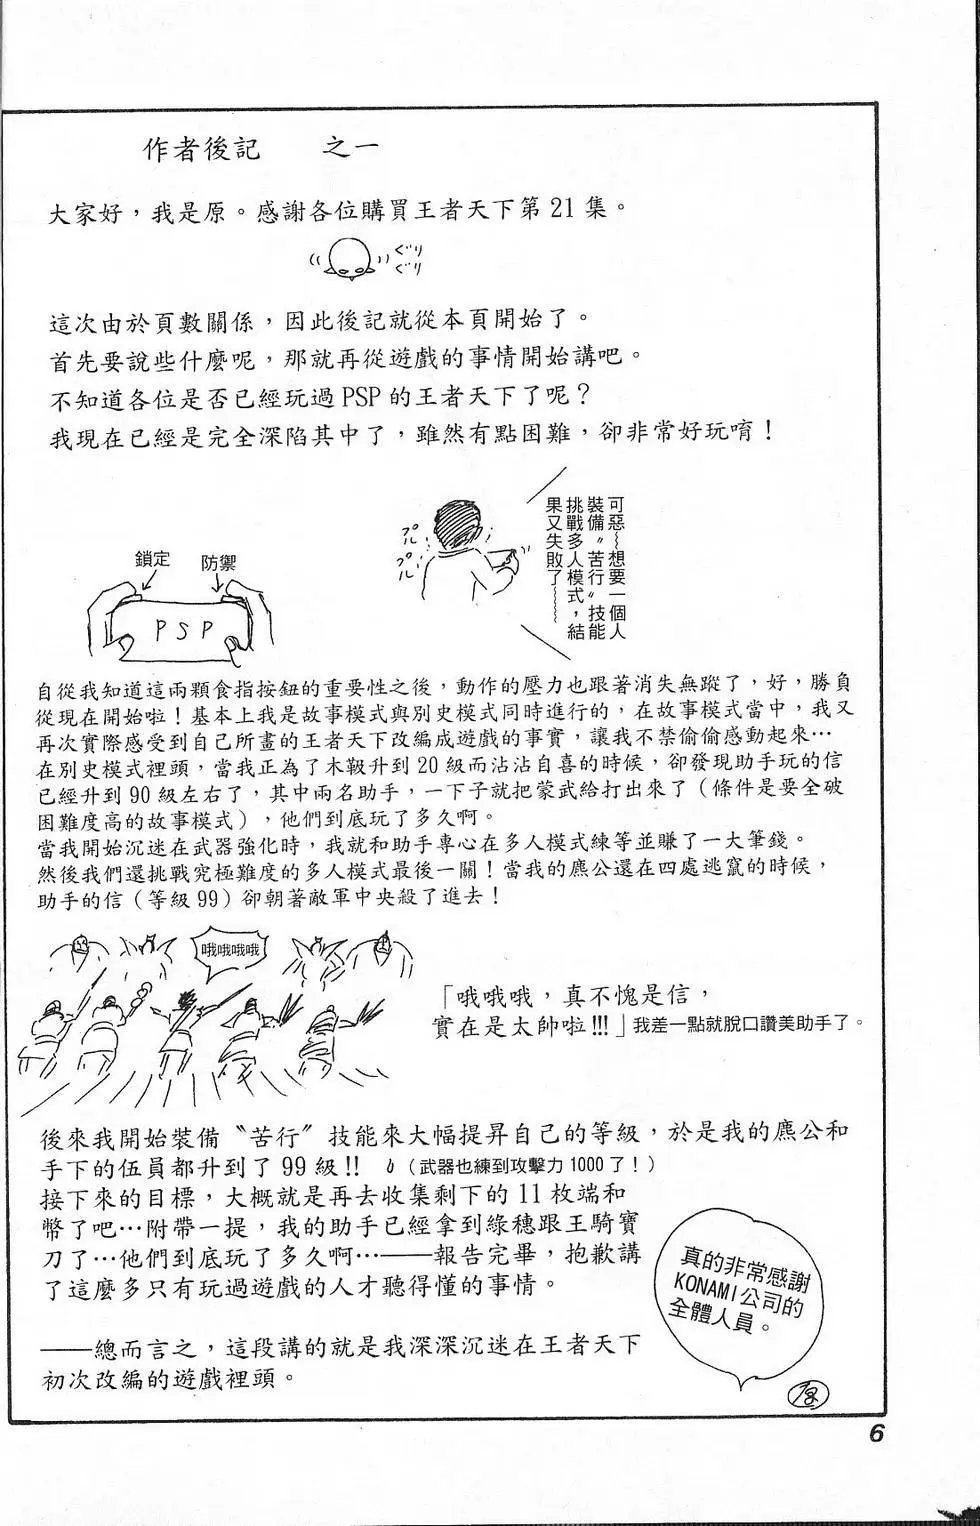 作者後記　之一
大家好，我是原。感謝各位購買王者天下第21集。
ぐり
ぐり
這次由於頁數關係，因此後記就從本頁開始了。
首先要說些什麼呢，那就再從遊戲的事情開始講吧。
不知道各位是否已經玩過PSP的王者天下了呢？
我現在已經是完全深陷其中了，雖然有點困難，卻非常好玩唷！
鎖定
防禦
PSP
プル
プル
可惡～想要一個人
裝備〝苦行〞技能
挑戰多人模式，結
果又失敗了～～～
自從我知道這兩顆食指按鈕的重要性之後，動作的壓力也跟著消失無蹤了，好，勝負
從現在開始啦！基本上我是故事模式與別史模式同時進行的，在故事模式當中，我又
再次實際感受到自己所畫的王者天下改編成遊戲的事實，讓我不禁偷偷感動起來…
在別史模式裡頭，當我正為了木靫升到20級而沾沾自喜的時候，卻發現助手玩的信
已經升到90級左右了，其中兩名助手，一下子就把蒙武給打出來了（條件是要全破
困難度高的故事模式），他們到底玩了多久啊。
當我開始沉迷在武器強化時，我就和助手專心在多人模式練等並賺了一大筆錢。
然後我們還挑戰究極難度的多人模式最後一關！當我的麃公還在四處逃竄的時候，
助手的信（等級99）卻朝著敵軍中央殺了進去！
哦哦哦哦
「哦哦哦，真不愧是信，
實在是太帥啦!!!」我差一點就脫口讚美助手了。
後來我開始裝備〝苦行〞技能來大幅提昇自己的等級，於是我的麃公和
手下的伍員都升到了99級!!（武器也練到攻擊力1000了！）
接下來的目標，大概就是再去收集剩下的11枚端和
幣了吧…附帶一提，我的助手已經拿到綠穗跟王騎寶
刀了…他們到底玩了多久啊…——報告完畢，抱歉講
了這麼多只有玩過遊戲的人才聽得懂的事情。
——總而言之，這段講的就是我深深沉迷在王者天下
初次改編的遊戲裡頭。
真的非常感謝
KONAMI公司的
全體人員。
原
6